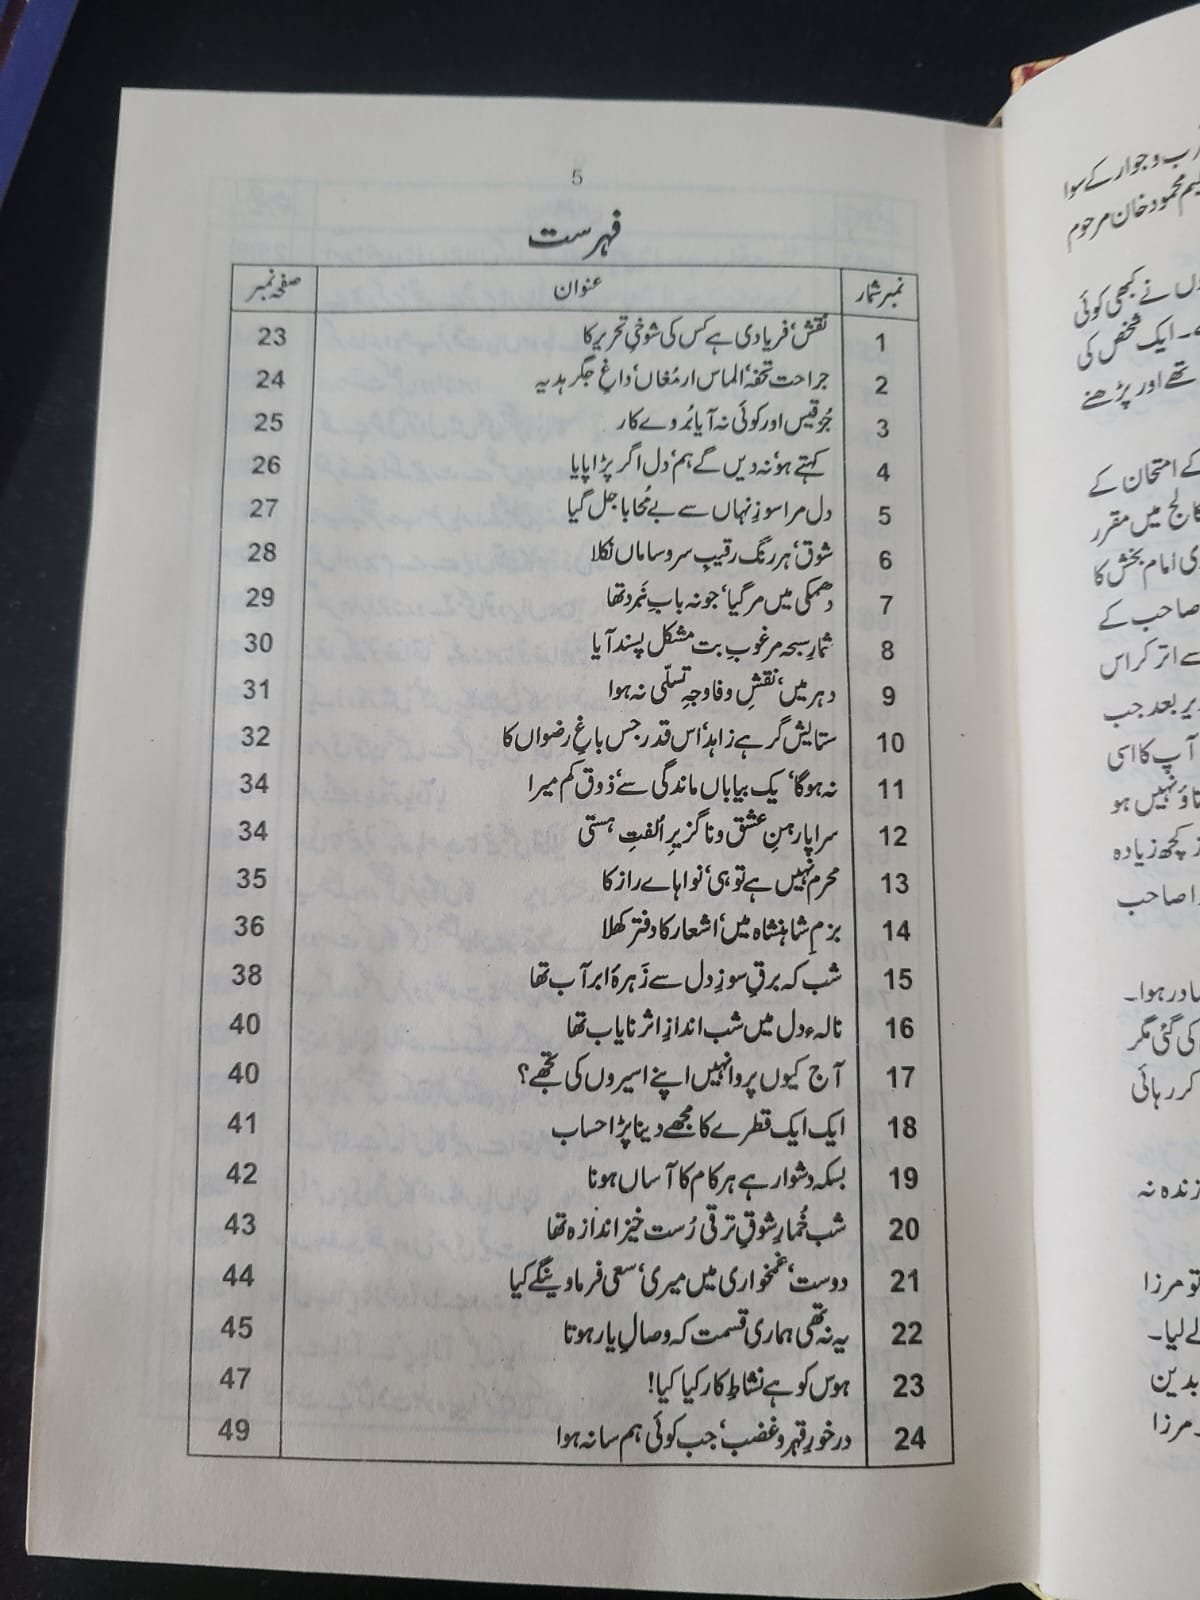 5
فہرست
نمبر شمار عنوان صفحہ نمبر
1 نقش، فریادی ہے کس کی شوخیِ تحریر کا 23
2 جراحت تحفہ، الماس ارمغاں، داغِ جگر ہدیہ 24
3 جُز قیس اور کوئی نہ آیا بُروے کار 25
4 کہتے ہو، نہ دیں گے ہم، دل اگر پڑا پایا 26
5 دل مرا سوزِ نہاں سے بے مُحابا جل گیا 27
6 شوق، ہر رنگ رقیبِ سر و ساماں نکلا 28
7 دھمکی میں مر گیا، جو نہ بابِ نَبرد تھا 29
8 شمارِ سبحہ مرغوبِ بت مشکل پسند آیا 30
9 دہر میں، نقشِ وفا وجہِ تسلّی نہ ہوا 31
10 ستایش گر ہے زاہد، اس قدر جس باغِ رضواں کا 32
11 نہ ہوگا، یک بیاباں ماندگی سے، ذوق کم میرا 34
12 سراپا رہنِ عشق و ناگزیرِ اُلفتِ ہستی 34
13 محرم نہیں ہے تو ہی، نواہاے راز کا 35
14 بزمِ شاہنشاہ میں، اشعار کا دفتر کھلا 36
15 شب کہ برقِ سوزِ دل سے زَہرۂ ابر آب تھا 38
16 نالہء دل میں شب اندازِ اثر نایاب تھا 40
17 آج کیوں پروا نہیں اپنے اسیروں کی تجھے؟ 40
18 ایک ایک قطرے کا مجھے دینا پڑا حساب 41
19 بسکہ دشوار ہے ہر کام کا آساں ہونا 42
20 شب خُمارِ شوقِ ترقی رُست خیز اندازہ تھا 43
21 دوست، غمخواری میں میری، سعی فرماوینگے کیا 44
22 یہ نہ تھی ہماری قسمت کہ وصالِ یار ہوتا 45
23 ہوس کو ہے نشاطِ کار کیا کیا! 47
24 درخورِ قہر و غضب، جب کوئی ہم سا نہ ہوا 49
و جوار کے سوا
محمود خان مرحوم
نے کبھی کوئی
ایک شخص کی
تھے اور پڑھنے
کے امتحان کے
کالج میں مقرر
امام بخش کا
صاحب کے
سے اتر کر اس
بعد جب
آپ کا اسی
نہیں ہو
کچھ زیادہ
صاحب
صادر ہوا۔
کی گئی مگر
کر رہائی
زندہ نہ
تو مرزا
لے لیا۔
مرزا